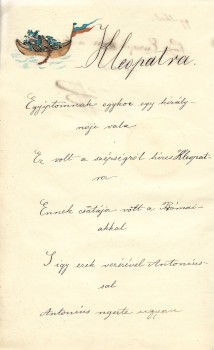 Kleopatra.
Egyiptomnak egykor egy király-
nője vala
Ez volt a szépségről híres Kleopat-
ra
Ennek csatája volt a Római-
akkal
S így erek verével Antonius-
sal
Antonius nyerte ugyan